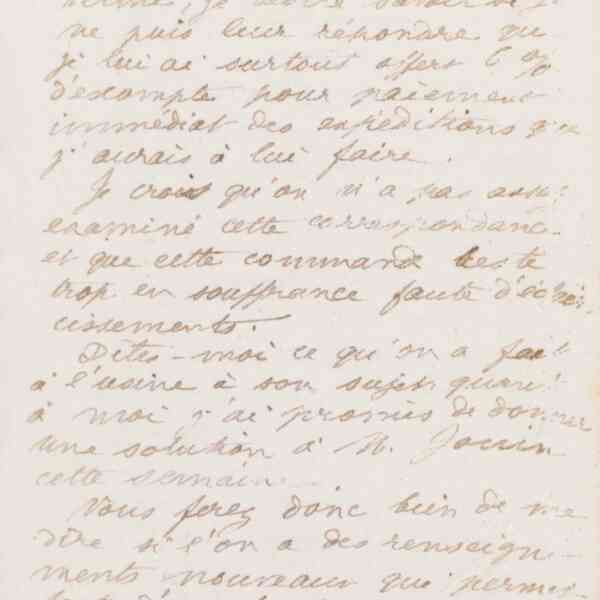 ne puis leur répondre que
je lui ai surtout offert 6 %
d'escompte pour paiement
immédiat des expéditions que
j'aurais à lui faire.
Je crois qu'on n'a pas assez
examiné cette correspondance
et que cette commande reste
trop en souffrance faute d'éclair-
cissements.
Dites-moi ce qu'on a fait
à l'usine à son sujet quant
à moi j'ai promis de donner
une solution à M. Jouin
cette semaine
Vous ferez donc bien de me
dire si l'on a des renseigne-
ments nouveaux qui permet-